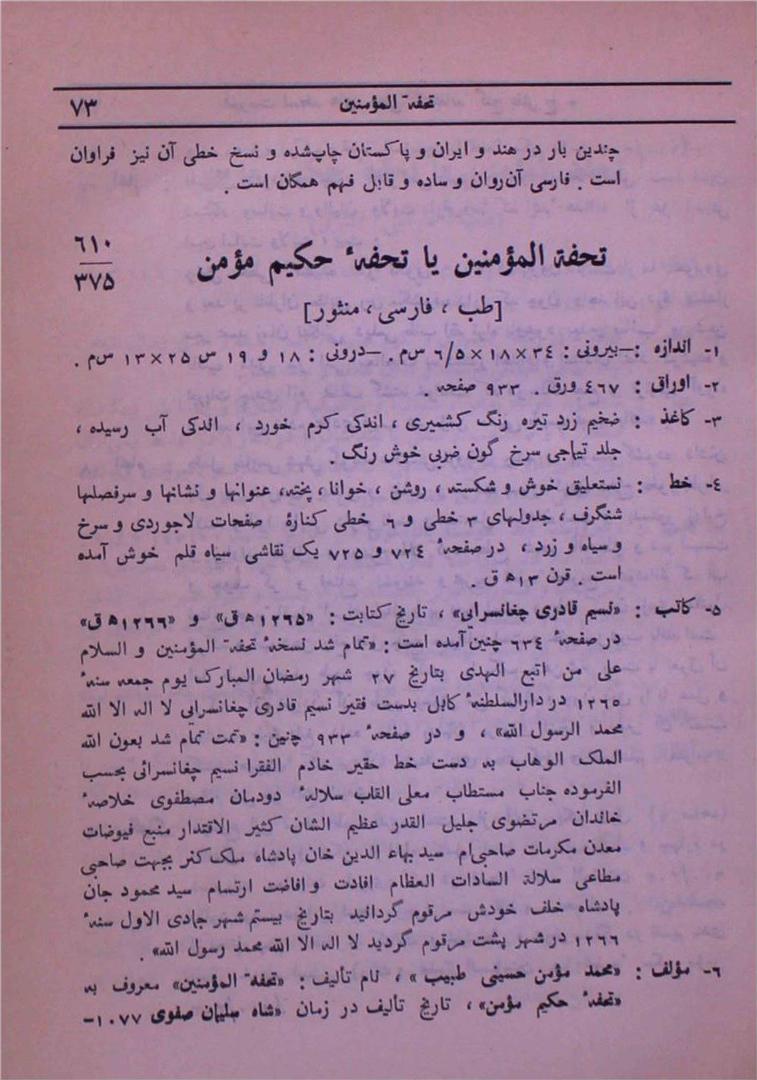 تحفة المؤمنین ۷۳
چندین بار در هند و ایران و پاکستان چاپ‌شده و نسخ خطی آن نیز فراوان
است . فارسی آن‌روان و ساده و قابل فهم همگان است .
تحفة المؤمنین یا تحفهٔ حکیم مؤمن
٦١٠
۳۷۵
[طب ، فارسی ، منثور]
۱- اندازه : –بیرونی : ۳٤×۱۸×٦/۵ س‌م . –درونی : ۱۸ و ۱۹ س ۲۵×۱۳ س‌م .
۲- اوراق : ٤٦۷ ورق . ۹۳۳ صفحه .
۳- کاغذ : ضخیم زرد تیره رنگ کشمیری ، اندکی کرم خورد ، اندکی آب رسیده ،
جلد تیاجی سرخ گون ضربی خوش رنگ .
٤- خط : نستعلیق خوش و شکسته ، روشن ، خوانا ، پخته، عنوانها و نشانها و سرفصلها
شنگرف ، جدولهای ۳ خطی و ٦ خطی کنارهٔ صفحات لاجوردی و سرخ
و سیاه و زرد ، در صفحهٔ ۷۲٤ و ۷۲۵ یک نقاشی سیاه قلم خوش آمده
است . قرن ۱۳ ه ق .
۵- کاتب : «نسیم قادری چغانسرایی» ، تاریخ کتابت : «۱۲٦۵ ه ق» و «۱۲٦٦ ه ق»
در صفحهٔ ٦۳٤ چنین آمده است : «تمام شد نسخهٔ تحفة المؤمنین و السلام
علی من اتبع الهدی بتاریخ ۲۷ شهر رمضان المبارک یوم جمعه سنهٔ
۱۲٦۵ در دارالسلطنهٔ کابل بدست فقیر نسیم قادری چغانسرایی لا اله الا الله
محمد الرسول الله» ، و در صفحهٔ ۹۳۳ چنین : «تمت تمام شد بعون الله
الملک الوهاب به دست خط حقیر خادم الفقرا نسیم چغانسرائی بحسب
الفرموده جناب مستطاب معلی القاب سلالهٔ دودمان مصطفوی خلاصهٔ
خاندان مرتضوی جلیل القدر عظیم الشان کثیر الاقتدار منبع فیوضات
معدن مکرمات صاحبی‌ام سید بهاء الدین خان پادشاه ملک کنر بجهت صاحبی
مطاعی سلالة السادات العظام افادت و افاضت ارتسام سید محمود جان
پادشاه خلف خودش مرقوم گردانید بتاریخ بیستم شهر جمادی الاول سنهٔ
۱۲٦٦ در شهر پشت مرقوم گردید لا اله الا الله محمد رسول الله» .
٦- مؤلف : «محمد مؤمن حسینی طبیب » ، نام تألیف : «تحفة المؤمنین» معروف به
«تحفهٔ حکیم مؤمن» ، تاریخ تألیف در زمان «شاه سلیمان صفوی ۱۰۷۷–